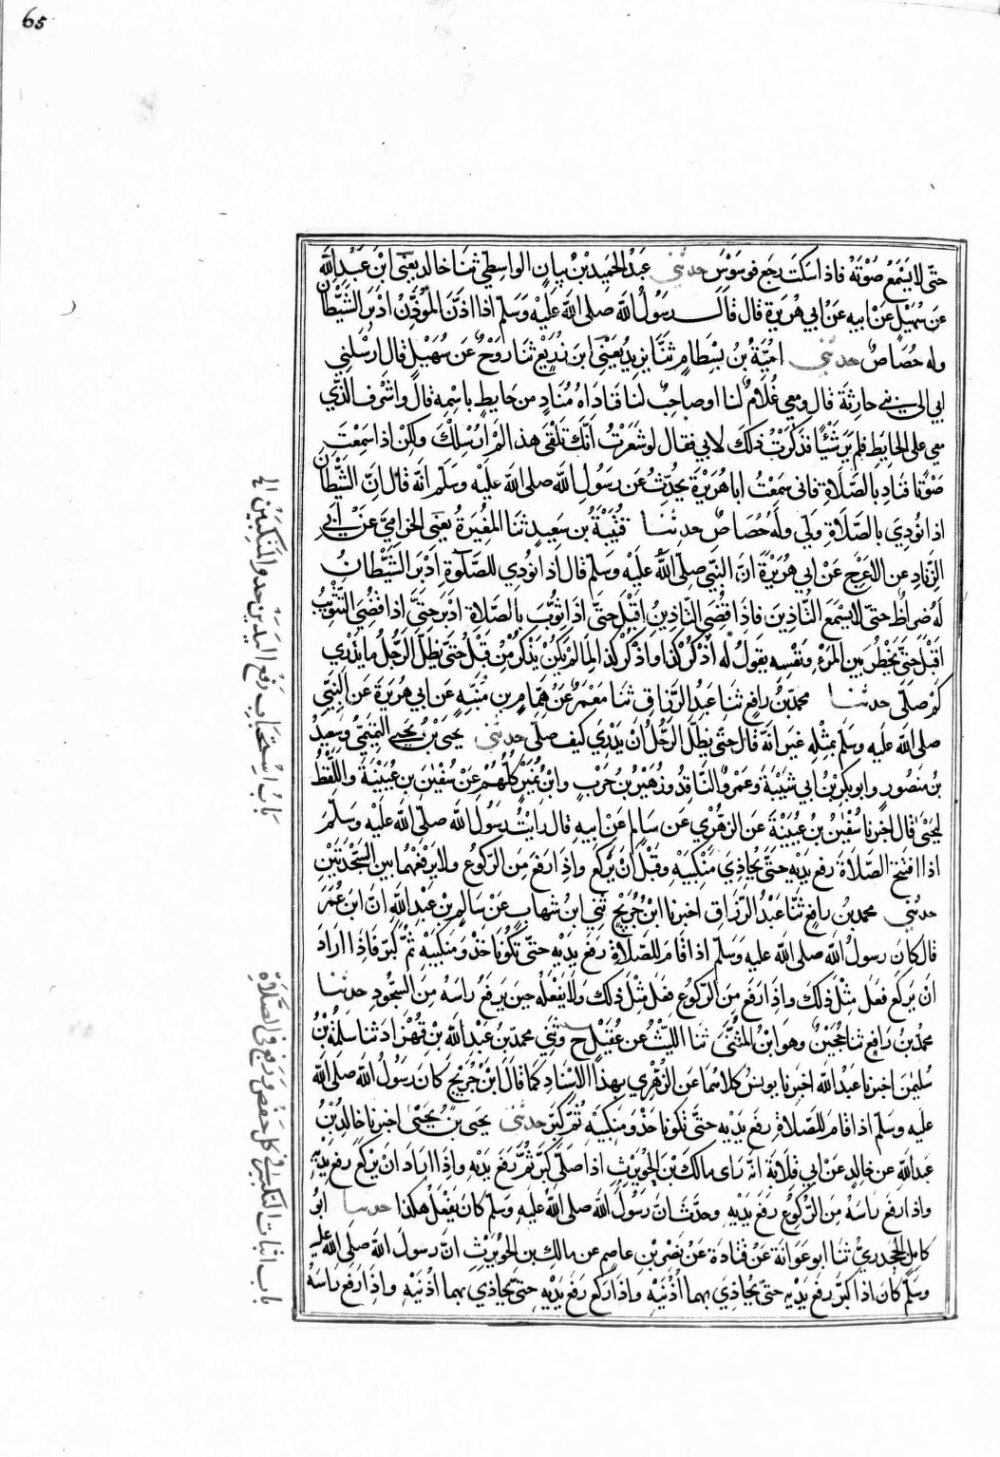 65
حتى لا يسمع صوته فاذا سكت رجع فوسوس حدثني عبد الحميد بن بيان الواسطي ثنا خالد يعنى ابن عبد الله
عن سهيل عن ابيه عن ابي هريرة قال قال رسول الله صلى الله عليه وسلم اذا اذن المؤذن ادبر الشيطان
وله حصاص حدثني امية بن بسطام ثنا يزيد يعنى ابن زريع ثنا روح عن سهيل قال ارسلني
ابي الى بني حارثة قال ومعي غلام لنا او صاحب لنا فناداه مناد من حايط باسمه قال واشرف الذي
معي على الحايط فلم ير شيئا فذكرت ذلك لابي فقال لو شعرت انك تلقى هذا لم ارسلك ولكن اذا سمعت
صوتا فناد بالصلاة فانى سمعت ابا هريرة يحدث عن رسول الله صلى الله عليه وسلم انه قال ان الشيطان
اذا نودي بالصلاة ولي وله حصاص حدثنا قتيبة بن سعيد ثنا المغيرة يعنى الحزامي عن ابي
الزناد عن الاعرج عن ابي هريرة ان النبي صلى الله عليه وسلم قال اذا نودي للصلوة ادبر الشيطان
له ضراط حتى لا يسمع التاذين فاذا قضي التاذين اقبل حتى اذا ثوب بالصلاة ادبر حتى اذا قضي التثويب
اقبل حتى يخطر بين المرء ونفسه يقول له اذكر كذا واذكر كذا لما لم يكن يذكر من قبل حتى يظل الرجل ما يدري
كم صلى حدثنا محمد بن رافع ثنا عبد الرزاق ثنا معمر عن همام بن منبه عن ابي هريرة عن النبي
صلى الله عليه وسلم بمثله غير انه قال حتى يظل الرجل ان يدري كيف صلى حدثني يحيى بن يحيى التميمي وسعيد
بن منصور وابو بكر بن ابي شيبة وعمرو الناقد وزهير بن حرب وابن نمير كلهم عن سفين بن عيينة واللفظ
ليحيى قال اخبرنا سفين بن عيينة عن الزهري عن سالم عن ابيه قال رايت رسول الله صلى الله عليه وسلم
اذا افتتح الصلاة رفع يديه حتى يحاذي منكبيه وقبل ان يركع واذا رفع من الركوع ولا يرفعهما بين السجدتين
حدثني محمد بن رافع ثنا عبد الرزاق اخبرنا ابن جريج ثني ابن شهاب عن سالم بن عبد الله ان ابن عمر
قال كان رسول الله صلى الله عليه وسلم اذا قام للصلاة رفع يديه حتى تكونا حذو منكبيه ثم كبر فاذا اراد
ان يركع فعل مثل ذلك واذا رفع من الركوع فعل مثل ذلك ولا يفعله حين يرفع راسه من السجود حدثنا
محمد بن رافع ثنا حجين وهو ابن المثنى ثنا الليث عن عقيل ح وثني محمد بن عبد الله بن قهزاد ثنا سلمة بن
سليمن اخبرنا عبد الله اخبرنا يونس كلاهما عن الزهري بهذا الاسناد كما قال ابن جريج كان رسول الله صلى الله
عليه وسلم اذا قام للصلاة رفع يديه حتى تكونا حذو منكبيه ثم كبر حدثني يحيى بن يحيى اخبرنا خالد بن
عبد الله عن خالد عن ابي قلابة انه راى مالك بن الحويرث اذا صلى كبر ثم رفع يديه واذا اراد ان يركع رفع يديه
واذا رفع راسه من الركوع رفع يديه وحدث ان رسول الله صلى الله عليه وسلم كان يفعل هكذا حدثنا ابو
كامل الجحدري ثنا ابو عوانة عن قتادة عن نصر بن عاصم عن مالك بن الحويرث ان رسول الله صلى الله عليه
وسلم كان اذا كبر رفع يديه حتى يحاذي بهما اذنيه واذا ركع رفع يديه حتى يحاذي بهما اذنيه واذا رفع راسه
باب استحباب رفع اليدين حذو المنكبين الخ
باب اثبات التكبير في كل خفض ورفع في الصلاة